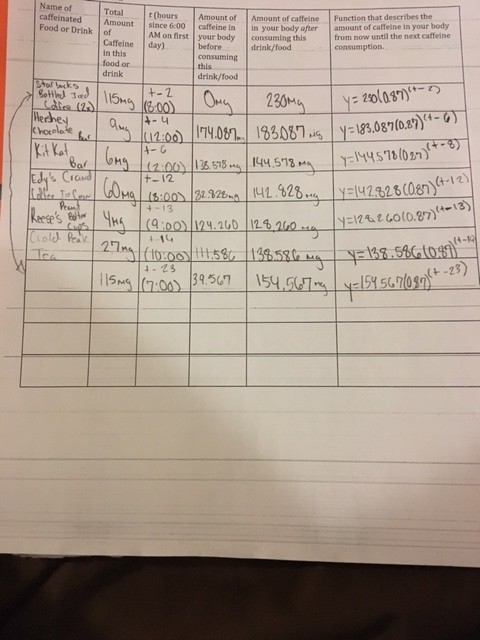 Name of
caffeinated
Food or Drink
Total
Amount
of
Caffeine
in this
food or
drink
t (hours
since 6:00
AM on first
day)
Amount of
caffeine in
your body
before
consuming
this
drink/food
Amount of caffeine
in your body after
consuming this
drink/food
Function that describes the
amount of caffeine in your body
from now until the next caffeine
consumption.
Starbucks
Bottled Iced
Coffee (2x)
115mg
t-2
(8:00)
0mg
230mg
y=230(0.87)^(t-2)
Hershey
Chocolate Bar
9mg
t-4
(12:00)
174.087
183.087 mg
y=183.087(0.87)^(t-6)
Kit Kat
Bar
6mg
t-6
(2:00)
138.578 mg
144.578 mg
y=144.578(0.87)^(t-8)
Edy's Grand
Coffee
60mg
t-12
(8:00)
82.828mg
142.828mg
y=142.828(0.87)^(t-12)
Reese's
Cups
4mg
t-13
(9:00)
124.260
128.260 mg
y=128.260(0.87)^(t-13)
Gold Peak
Tea
27mg
t-14
(10:00)
111.586
138.586 mg
y=138.586(0.87)
115mg
t-23
(7:00)
39.567
154.567mg
y=154.567(0.87)^(t-23)